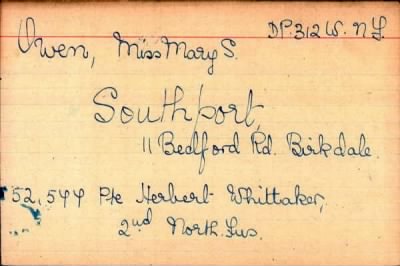 Owen, Miss Mary S.
DP.312 W. NF.
Southport,
11 Bedford Rd. Birkdale.
52,544 Pte Herbert Whittaker,
2nd North. Fus.